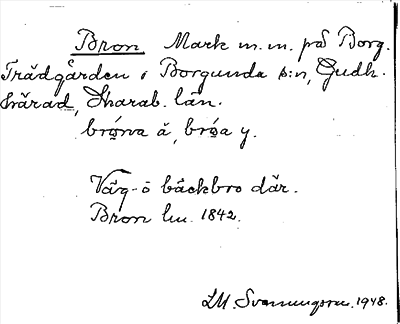 Bron Mark m.m. på Borg.
Trädgården i Borgunda s:n, Gudh.
härad, Skarab. län.
bro̤na ä, bro̤a y.
Väg- o bäckbro där.
Bron lm. 1842.
LM. Svanungson. 1948.